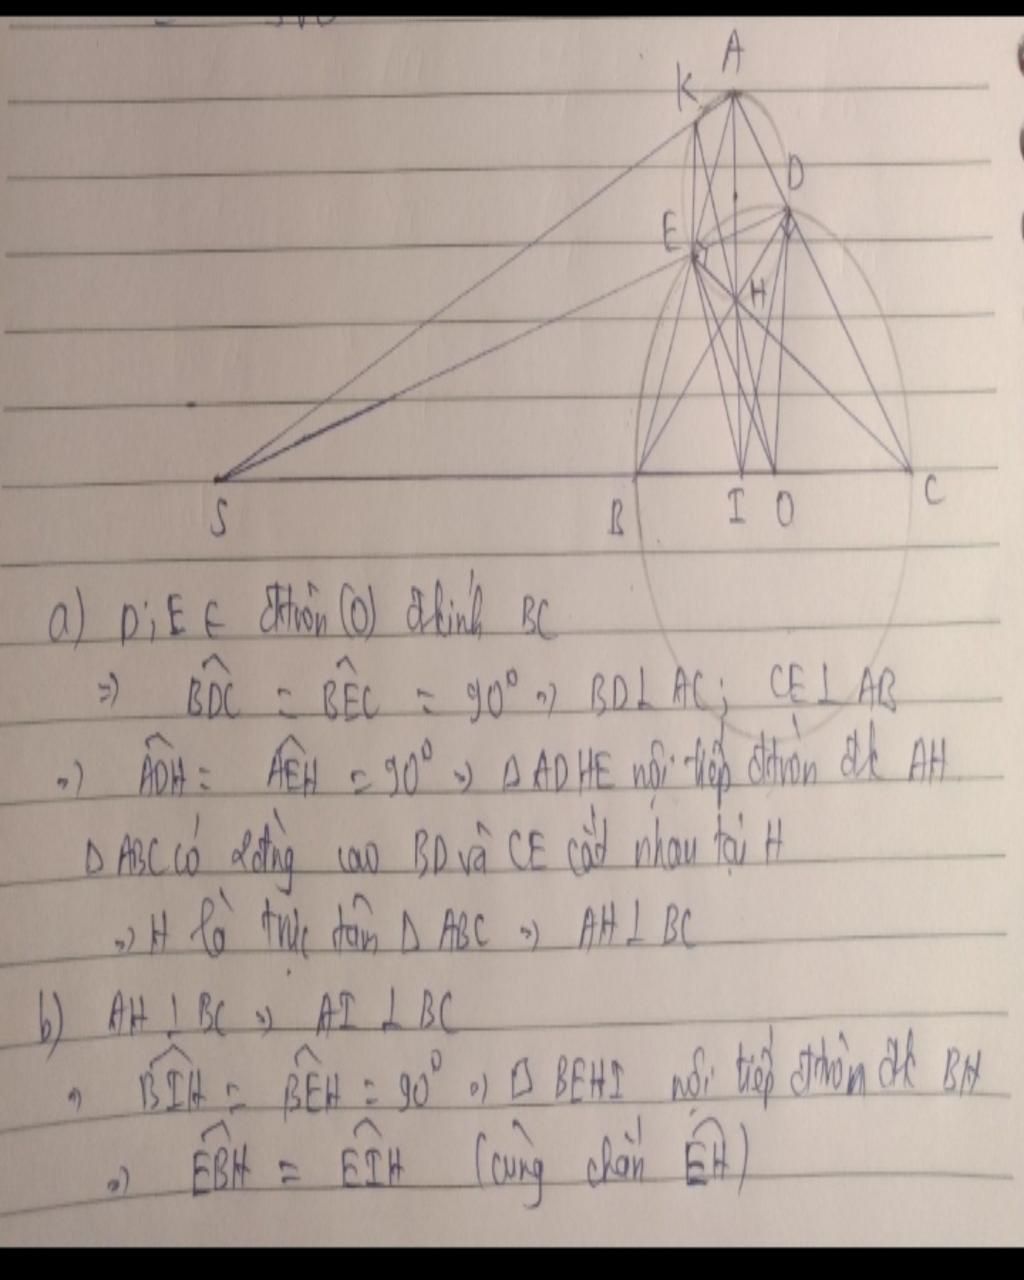 A
K
D
E
H
S
B
I
O
C
a) D; E ∈ đtròn (O) đkính BC
=> BDC = BEC = 90° => BD ⊥ AC; CE ⊥ AB
=> ADH = AEH = 90° => □ ADHE nội tiếp đtròn đk AH
Δ ABC có 2 đường cao BD và CE cắt nhau tại H
=> H là trực tâm Δ ABC => AH ⊥ BC
b) AH ⊥ BC => AI ⊥ BC
=> BIH = BEH = 90° => □ BEHI nội tiếp đtròn đk BH
=> EBH = EIH (cùng chắn EH)